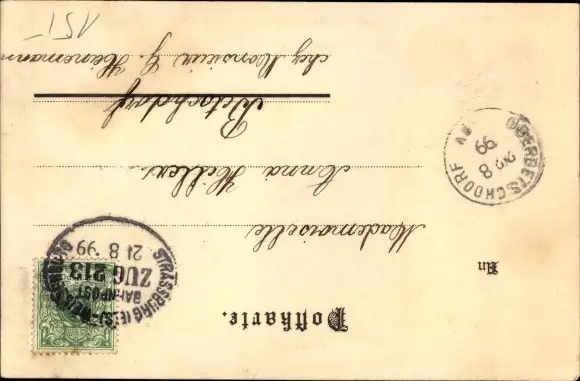 Postkarte.
An
Mademoiselle
Anna Hiller.
Betschdorf
chez Monsieur G. Heinemann
STRASSBURG (ELS)-
BAHNPOST
ZUG 213
21 8 99
OBERBETSCHDORF
8
99
151-